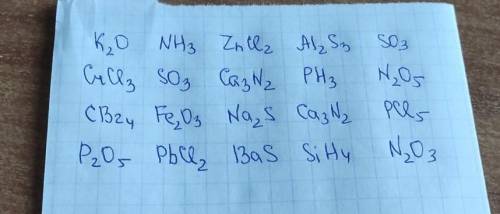 K₂O NH₃ ZnCl₂ Al₂S₃ SO₃
CrCl₃ SO₃ Ca₃N₂ PH₃ N₂O₅
CBr₄ Fe₂O₃ Na₂S Ca₃N₂ PCl₅
P₂O₅ PbCl₂ BaS SiH₄ N₂O₃